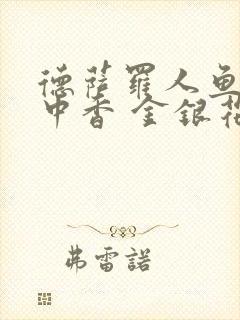 德薩羅人魚
中香 金銀花
弗雷諾